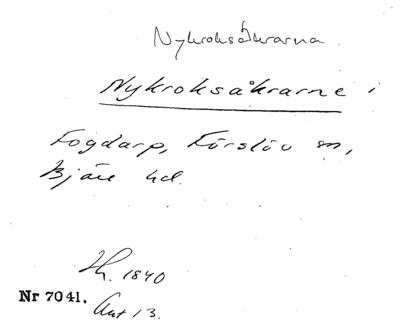 Nykroksåkrarna
Nykroksåkrarne i
Fogdarp, Förslöv sn,
Bjäre hd.
Lh. 1840
Nr 7041.
Akt 13.